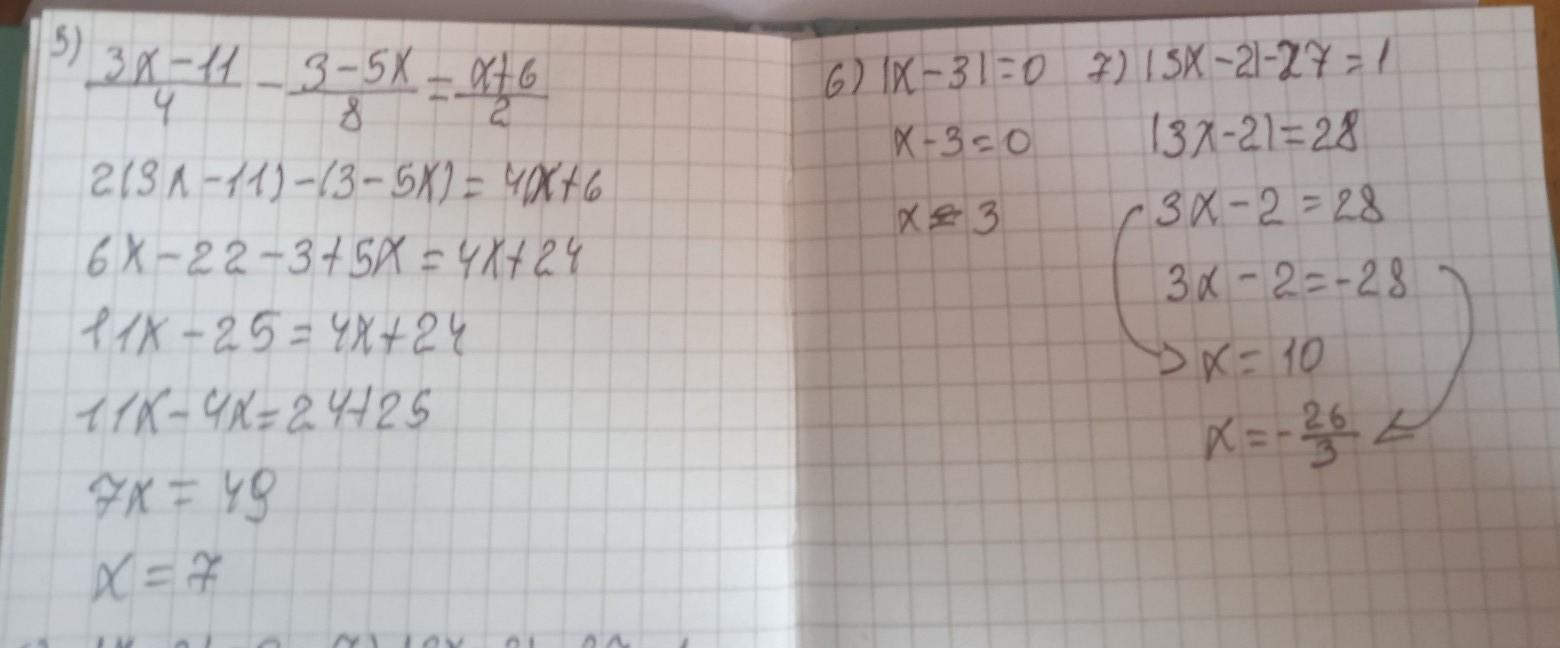 5) \frac{3x-11}{4} - \frac{3-5x}{8} = \frac{x+6}{2}
2(3x-11)-(3-5x)=4(x+6
6x-22-3+5x=4x+24
11x-25=4x+24
11x-4x=24+25
7x=49
x=7
6) |x-3|=0
x-3=0
x=3
7) |3x-2|-27=1
|3x-2|=28
3x-2=28
3x-2=-28
x=10
x=-\frac{26}{3}